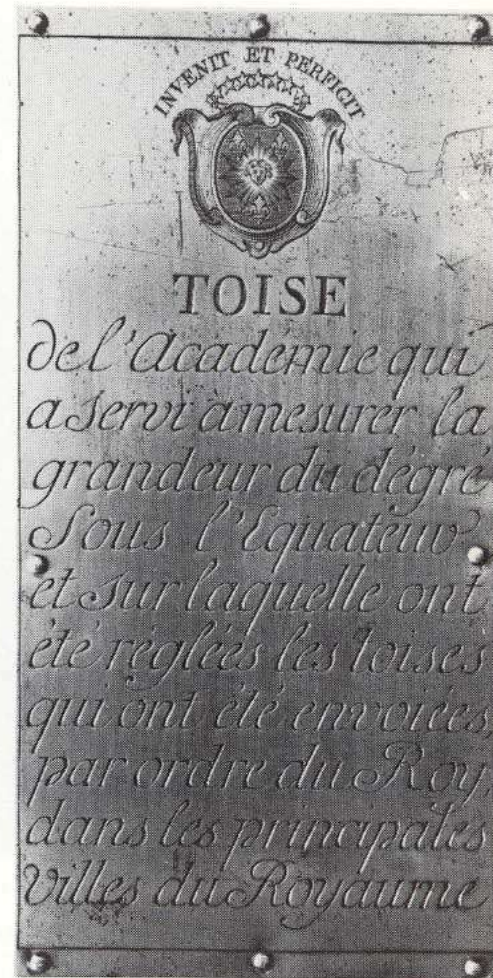 INVENIT ET PERFICIT
TOISE
de l'Academie qui
a servi à mesurer la
grandeur du dégré
Sous l'Equateur
et sur laquelle ont
été réglées les toises
qui ont été envoiées,
par ordre du Roy,
dans les principales
Villes du Royaume